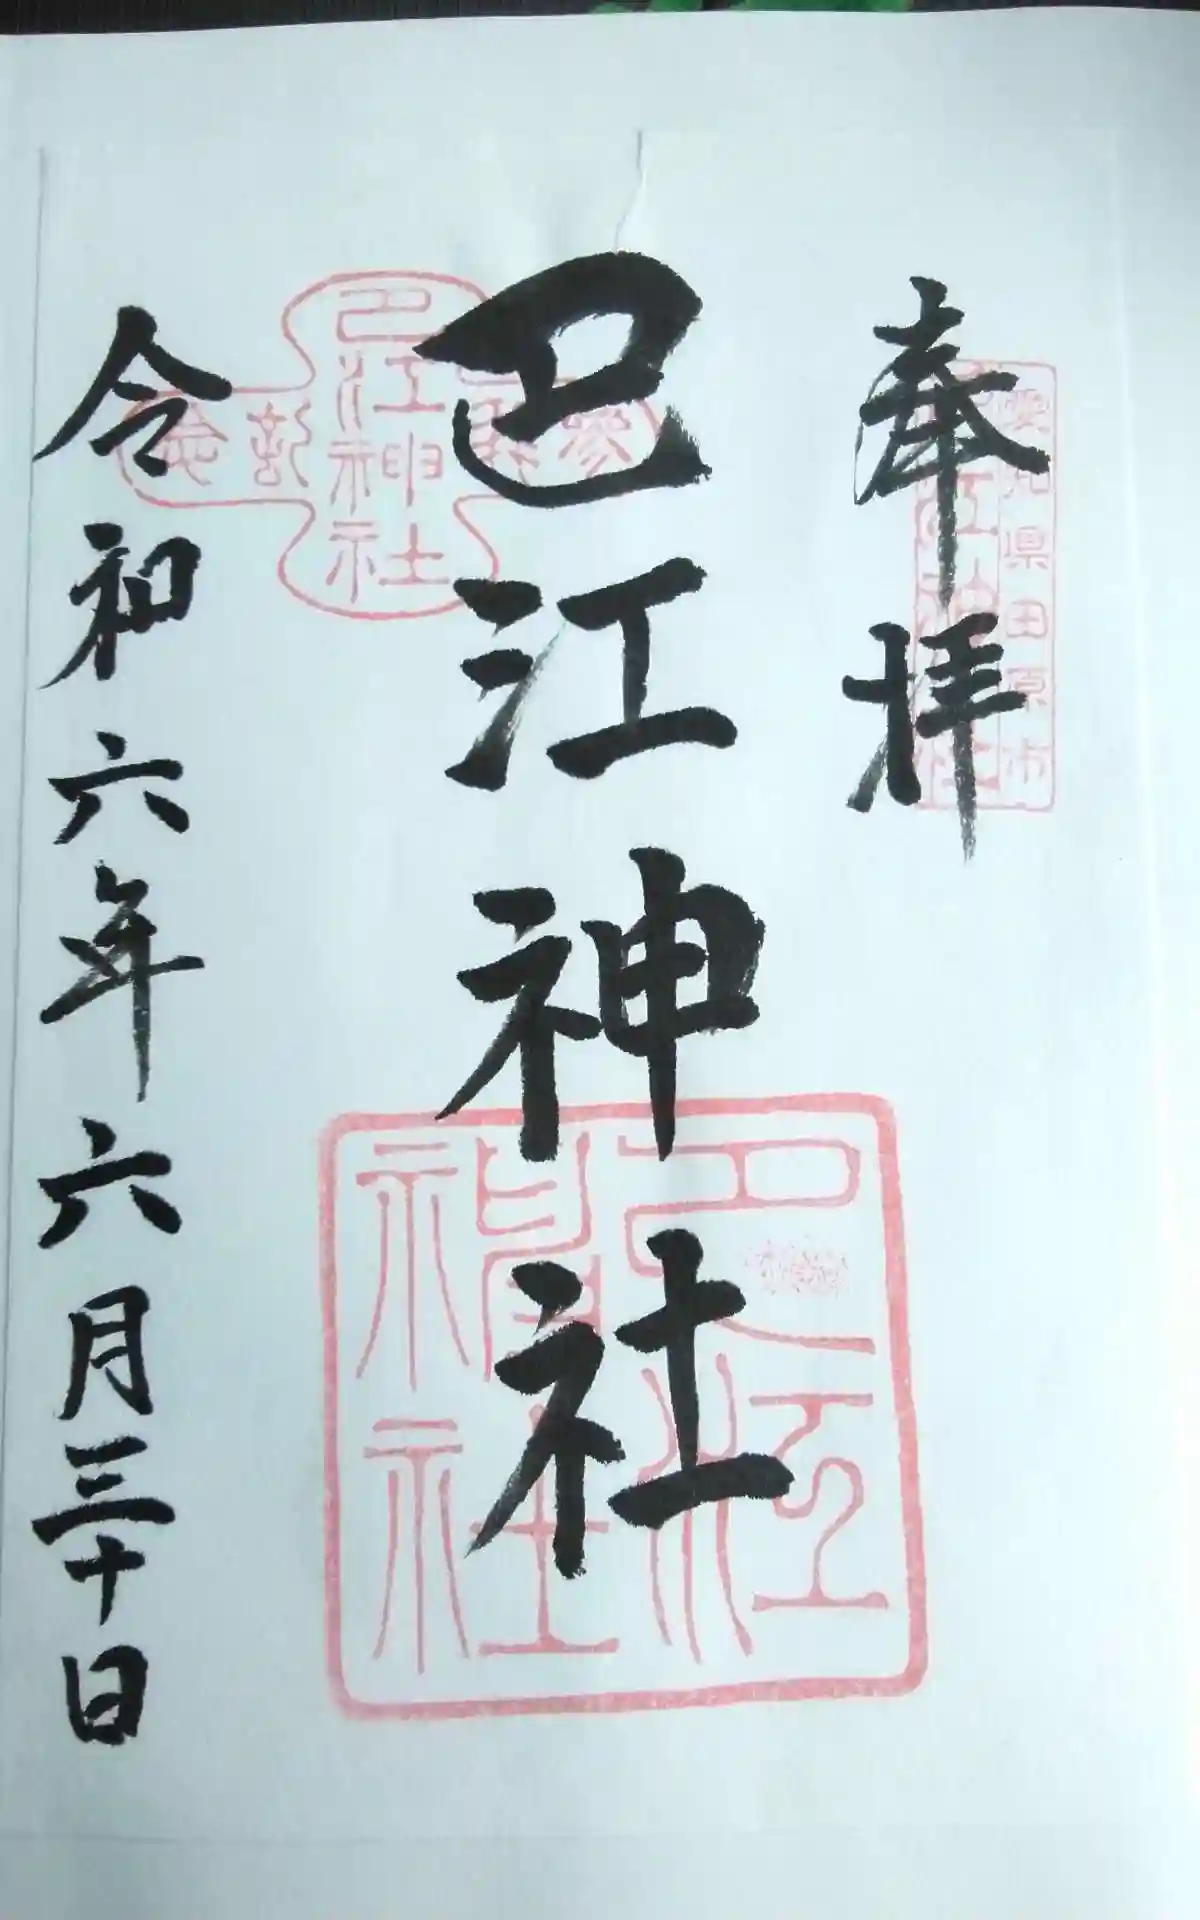 奉拝
愛知県田原市
巴江神社
巴江神社
巴江神社
参拝記念
巴江神社
令和六年六月三十日